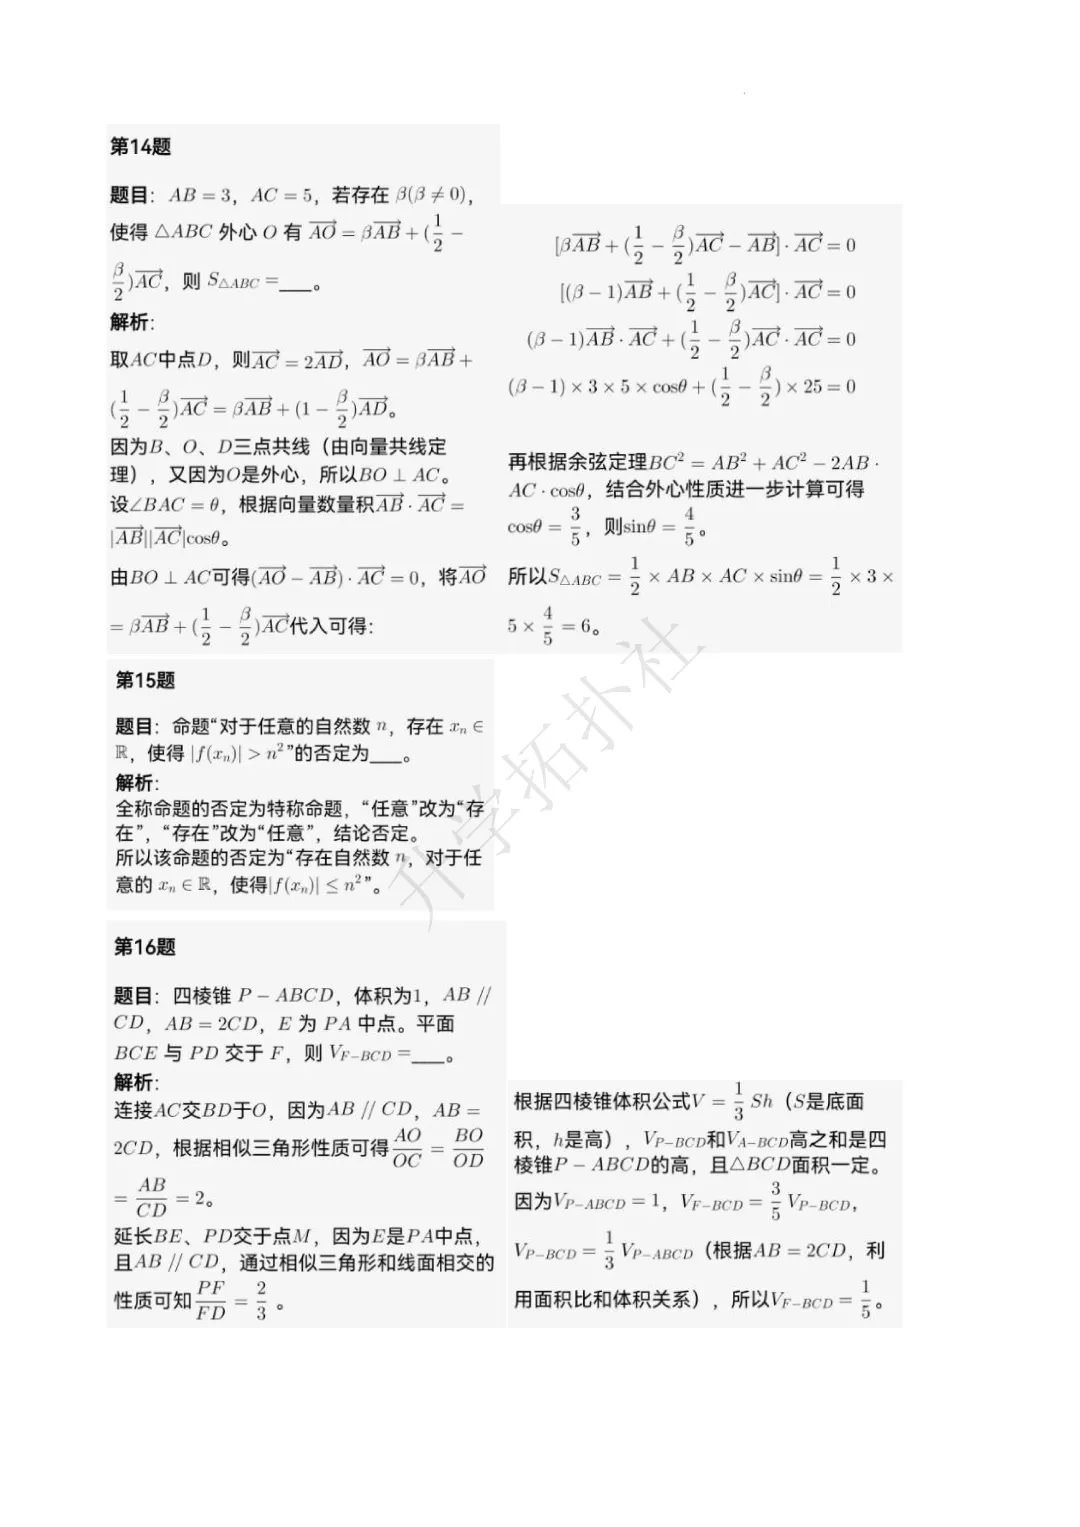 第14题
题目：AB = 3，AC = 5，若存在 β(β ≠ 0)，
使得 △ABC 外心 O 有 $\overrightarrow{AO} = \beta\overrightarrow{AB} + (\frac{1}{2} -$
$\frac{\beta}{2})\overrightarrow{AC}$，则 $S_{\triangle ABC}$ =____。
解析：
取AC中点D，则$\overrightarrow{AC} = 2\overrightarrow{AD}$，$\overrightarrow{AO} = \beta\overrightarrow{AB} +$
$(\frac{1}{2} - \frac{\beta}{2})\overrightarrow{AC} = \beta\overrightarrow{AB} + (1 - \frac{\beta}{2})\overrightarrow{AD}$。
因为B、O、D三点共线（由向量共线定
理），又因为O是外心，所以BO ⊥ AC。
设∠BAC = θ，根据向量数量积$\overrightarrow{AB} \cdot \overrightarrow{AC} =$
$|\overrightarrow{AB}||\overrightarrow{AC}|\cos\theta$。
由BO ⊥ AC可得$(\overrightarrow{AO} - \overrightarrow{AB}) \cdot \overrightarrow{AC} = 0$，将$\overrightarrow{AO}$
$= \beta\overrightarrow{AB} + (\frac{1}{2} - \frac{\beta}{2})\overrightarrow{AC}$代入可得：
$[\beta\overrightarrow{AB} + (\frac{1}{2} - \frac{\beta}{2})\overrightarrow{AC} - \overrightarrow{AB}] \cdot \overrightarrow{AC} = 0$
$[(\beta - 1)\overrightarrow{AB} + (\frac{1}{2} - \frac{\beta}{2})\overrightarrow{AC}] \cdot \overrightarrow{AC} = 0$
$(\beta - 1)\overrightarrow{AB} \cdot \overrightarrow{AC} + (\frac{1}{2} - \frac{\beta}{2})\overrightarrow{AC} \cdot \overrightarrow{AC} = 0$
$(\beta - 1) \times 3 \times 5 \times \cos\theta + (\frac{1}{2} - \frac{\beta}{2}) \times 25 = 0$
再根据余弦定理$BC^2 = AB^2 + AC^2 - 2AB \cdot$
$AC \cdot \cos\theta$，结合外心性质进一步计算可得
$\cos\theta = \frac{3}{5}$，则$\sin\theta = \frac{4}{5}$。
所以$S_{\triangle ABC} = \frac{1}{2} \times AB \times AC \times \sin\theta = \frac{1}{2} \times 3 \times$
$5 \times \frac{4}{5} = 6$。
第15题
题目：命题“对于任意的自然数 n，存在 $x_n \in$
$\mathbb{R}$，使得 $|f(x_n)| > n^2$”的否定为____。
解析：
全称命题的否定为特称命题，“任意”改为“存
在”，“存在”改为“任意”，结论否定。
所以该命题的否定为“存在自然数 n，对于任
意的 $x_n \in \mathbb{R}$，使得$|f(x_n)| \leq n^2$”。
第16题
题目：四棱锥 P − ABCD，体积为1，AB //
CD，AB = 2CD，E 为 PA 中点。平面
BCE 与 PD 交于 F，则 $V_{F-BCD}$ =____。
解析：
连接AC交BD于O，因为AB // CD，AB =
2CD，根据相似三角形性质可得$\frac{AO}{OC} = \frac{BO}{OD}$
$= \frac{AB}{CD} = 2$。
延长BE、PD交于点M，因为E是PA中点，
且AB // CD，通过相似三角形和线面相交的
性质可知$\frac{PF}{FD} = \frac{2}{3}$ 。
根据四棱锥体积公式$V = \frac{1}{3}Sh$（S是底面
积，h是高），$V_{P-BCD}$和$V_{A-BCD}$高之和是四
棱锥P − ABCD的高，且△BCD面积一定。
因为$V_{P-ABCD} = 1$，$V_{F-BCD} = \frac{3}{5}V_{P-BCD}$，
$V_{P-BCD} = \frac{1}{3}V_{P-ABCD}$（根据AB = 2CD，利
用面积比和体积关系），所以$V_{F-BCD} = \frac{1}{5}$。
升学拓扑社